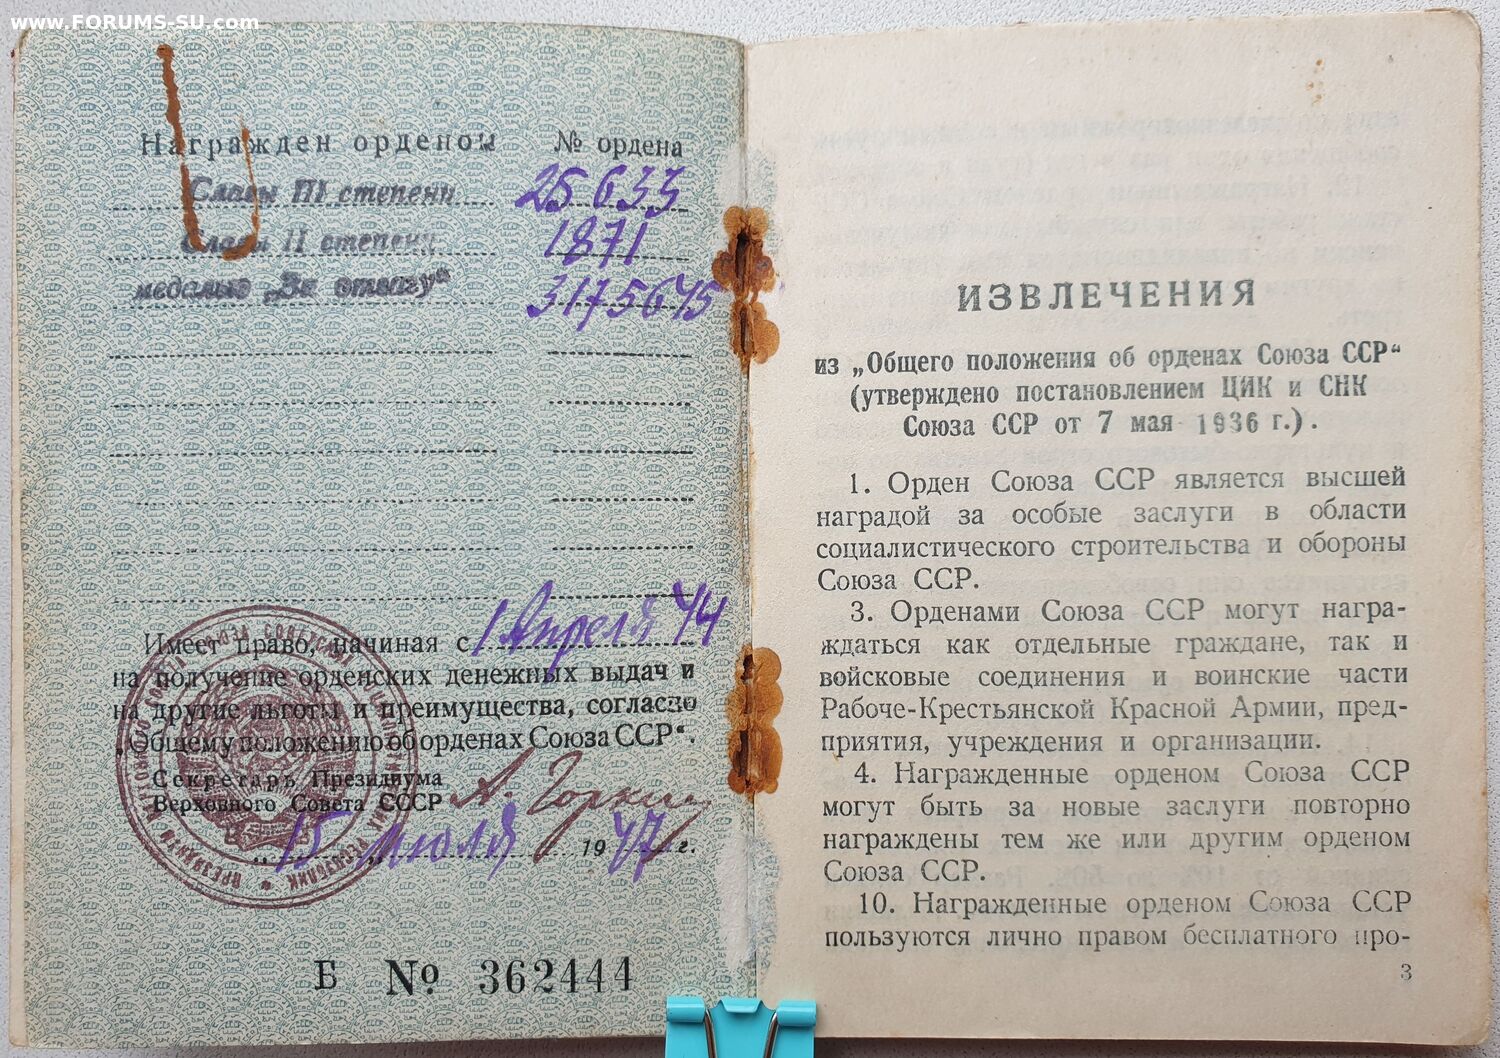 www.FORUMS-SU.com
Награжден орденом № ордена
Славы III степени 25633
Славы II степени 1871
медалью „За отвагу“ 3175645
Имеет право, начиная с 1 Апреля 44
на получение орденских денежных выдач и
на другие льготы и преимущества, согласно
„Общему положению об орденах Союза ССР“.
Секретарь Президиума
Верховного Совета СССР А. Горкин
„15„ июля 1947 г.
Б № 362444
ИЗВЛЕЧЕНИЯ
из „Общего положения об орденах Союза ССР“
(утверждено постановлением ЦИК и СНК
Союза ССР от 7 мая 1936 г.).
1. Орден Союза ССР является высшей
наградой за особые заслуги в области
социалистического строительства и обороны
Союза ССР.
3. Орденами Союза ССР могут награ-
ждаться как отдельные граждане, так и
войсковые соединения и воинские части
Рабоче-Крестьянской Красной Армии, пред-
приятия, учреждения и организации.
4. Награжденные орденом Союза ССР
могут быть за новые заслуги повторно
награждены тем же или другим орденом
Союза ССР.
10. Награжденные орденом Союза ССР
пользуются лично правом бесплатного про-
3